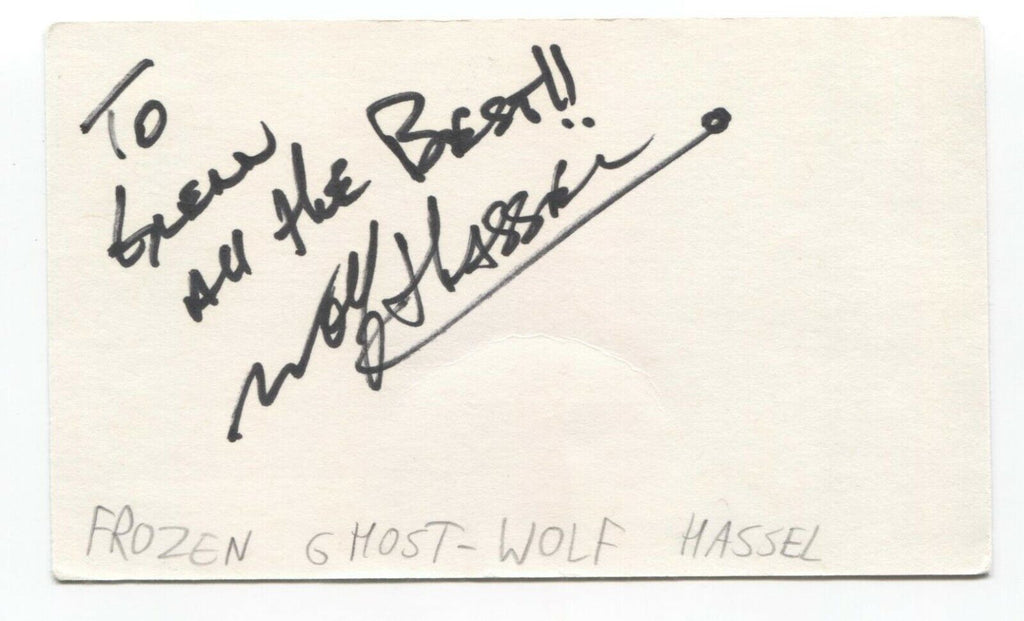 To
All the Best!!
Wolf Hassel
FROZEN GHOST-WOLF HASSEL